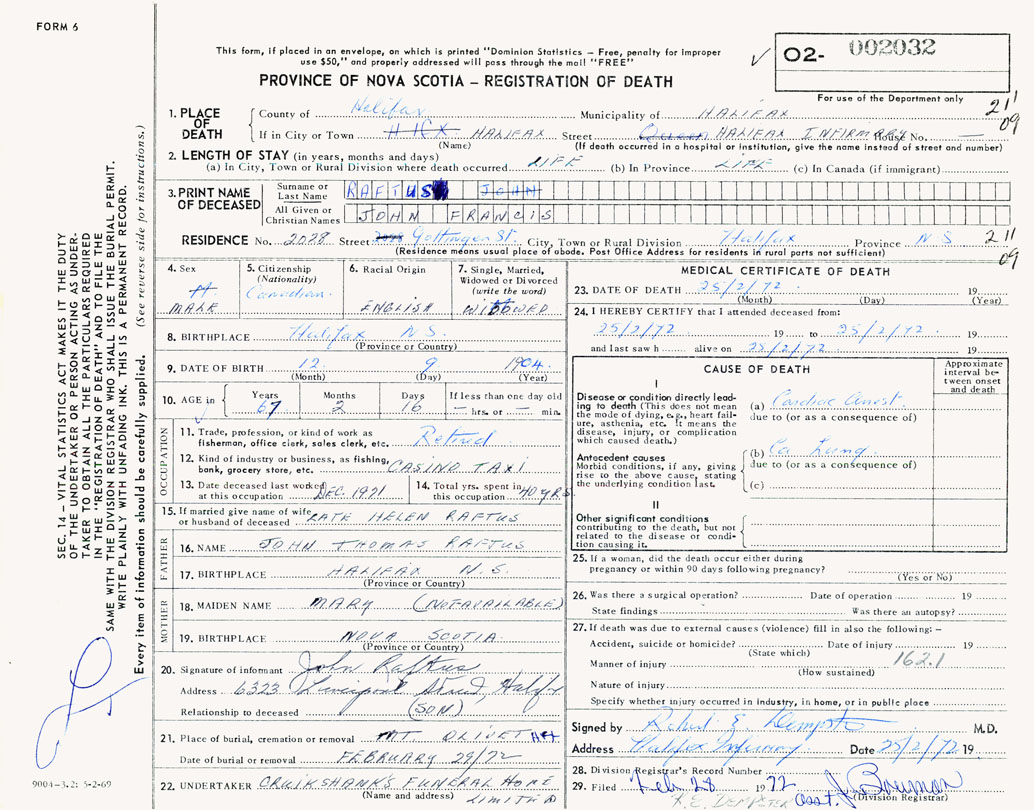 FORM 6
This form, if placed in an envelope, on which is printed "Dominion Statistics – Free, penalty for improper
use $50," and properly addressed will pass through the mail "FREE"
PROVINCE OF NOVA SCOTIA – REGISTRATION OF DEATH
O2- 002032
For use of the Department only
211
09
1. PLACE OF DEATH
County of Halifax Municipality of HALIFAX
If in City or Town HFX HALIFAX Street Queen HALIFAX INFIRMARY House No. —
(Name) (If death occurred in a hospital or institution, give the name instead of street and number)
2. LENGTH OF STAY (in years, months and days)
(a) In City, Town or Rural Division where death occurred LIFE (b) In Province LIFE (c) In Canada (if immigrant)
3. PRINT NAME OF DECEASED
Surname or Last Name RAFTUS JOHN
All Given or Christian Names JOHN FRANCIS
RESIDENCE No. 2028 Street Gottingen St. City, Town or Rural Division Halifax Province N S
(Residence means usual place of abode. Post Office Address for residents in rural parts not sufficient)
211
09
4. Sex
MALE
5. Citizenship
(Nationality)
Canadian
6. Racial Origin
ENGLISH
7. Single, Married,
Widowed or Divorced
(write the word)
WIDOWED
8. BIRTHPLACE Halifax N.S.
(Province or Country)
9. DATE OF BIRTH 12 9 1904
(Month) (Day) (Year)
10. AGE in
Years Months Days If less than one day old
67 2 16 — hrs. or — min.
OCCUPATION
11. Trade, profession, or kind of work as
fisherman, office clerk, sales clerk, etc. Retired
12. Kind of industry or business, as fishing,
bank, grocery store, etc. CASINO TAXI
13. Date deceased last worked
at this occupation DEC. 1971
14. Total yrs. spent in
this occupation 40 YRS.
15. If married give name of wife
or husband of deceased KATE HELEN RAFTUS
FATHER
16. NAME JOHN THOMAS RAFTUS
17. BIRTHPLACE HALIFAX N.S.
(Province or Country)
MOTHER
18. MAIDEN NAME MARY (NOT AVAILABLE)
19. BIRTHPLACE NOVA SCOTIA
(Province or Country)
20. Signature of informant John Raftus
Address 6323 Liverpool Street, Halifx
Relationship to deceased (SON)
21. Place of burial, cremation or removal MT OLIVET Hfx
Date of burial or removal FEBRUARY 29/72
22. UNDERTAKER CRUIKSHANK'S FUNERAL HOME
(Name and address) LIMITED
MEDICAL CERTIFICATE OF DEATH
23. DATE OF DEATH 25/2/72 19
(Month) (Day) (Year)
24. I HEREBY CERTIFY that I attended deceased from:
25/2/72 19 to 25/2/72 19
and last saw h alive on 25/2/72 19
CAUSE OF DEATH
Approximate
interval be-
tween onset
and death
I
Disease or condition directly lead-
ing to death (This does not mean
the mode of dying, e.g., heart fail-
ure, asthenia, etc. It means the
disease, injury, or complication
which caused death.)
(a) Cardiac Arrest
due to (or as a consequence of)
Antecedent causes
Morbid conditions, if any, giving
rise to the above cause, stating
the underlying condition last.
(b) Ca Lung
due to (or as a consequence of)
(c)
II
Other significant conditions
contributing to the death, but not
related to the disease or condi-
tion causing it.
25. If a woman, did the death occur either during
pregnancy or within 90 days following pregnancy?
(Yes or No)
26. Was there a surgical operation? Date of operation 19
State findings Was there an autopsy?
27. If death was due to external causes (violence) fill in also the following: –
Accident, suicide or homicide? Date of injury 19
(State which) 162.1
Manner of injury
(How sustained)
Nature of injury
Specify whether injury occurred in industry, in home, or in public place
Signed by Robert E Dempster M.D.
Address Halifax Infirmary Date 25/2/72 19
28. Division Registrar's Record Number
29. Filed Feb 28 1972 asst. J. Bowman
R.E. DEMPSTER (Division Registrar)
SEC. 14 – VITAL STATISTICS ACT MAKES IT THE DUTY
OF THE UNDERTAKER OR PERSON ACTING AS UNDER-
TAKER TO OBTAIN ALL THE PARTICULARS REQUIRED
IN THE "REGISTRATION OF DEATH" AND TO FILE THE
SAME WITH THE DIVISION REGISTRAR WHO SHALL ISSUE THE BURIAL PERMIT.
WRITE PLAINLY WITH UNFADING INK. THIS IS A PERMANENT RECORD.
Every item of information should be carefully supplied. (See reverse side for instructions.)
9004-3.2: 5-2-69